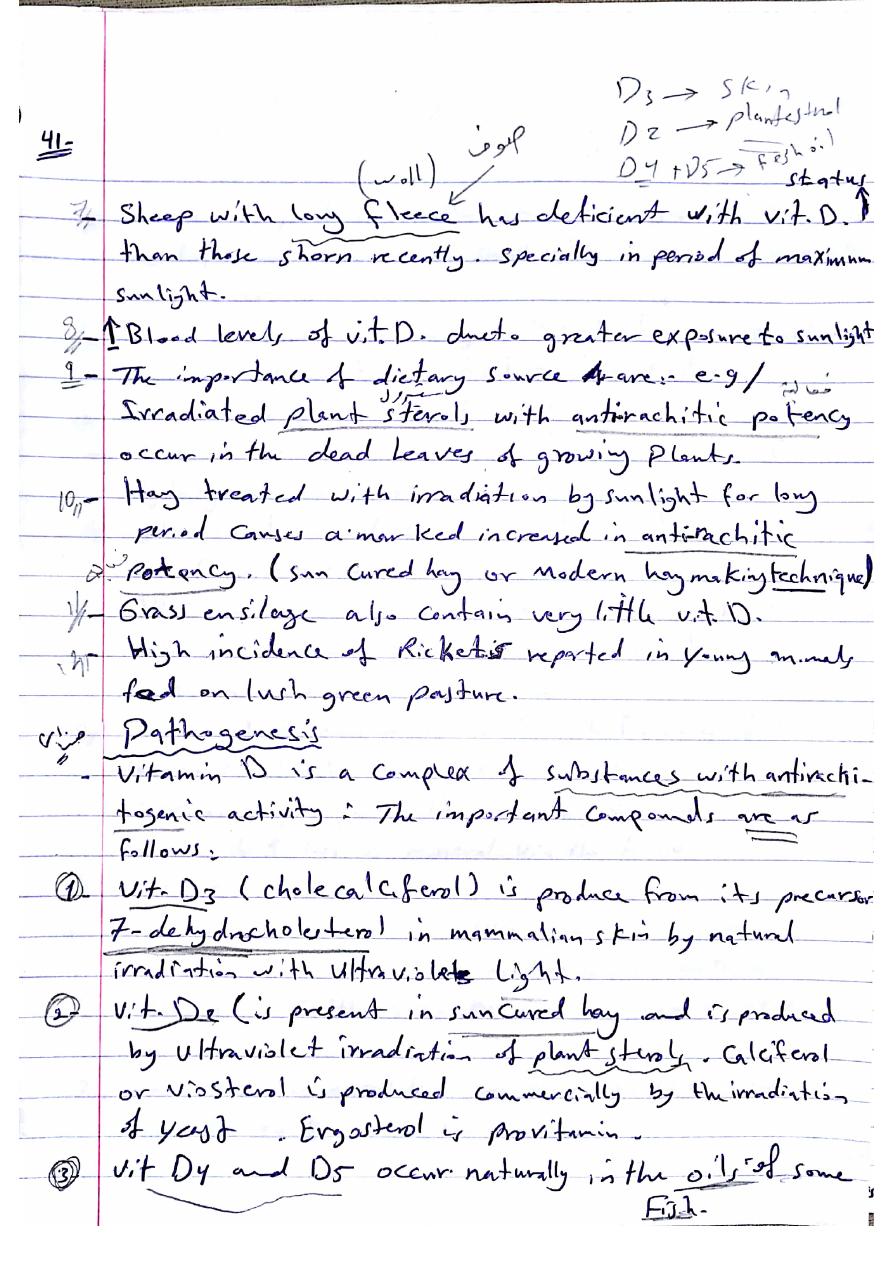 D3 → skin
D2 → plant sterol
D4 + D5 → fesh oil
41-
صوف
(woll)
status ↑
7- Sheep with long fleece has deficient with vit. D.
than those shorn recently. specially in period of maximum
sunlight.
8- ↑ Blood levels of vit. D. due to greater exposure to sunlight
9- The importance of dietary source are:- e.g/
فعالية
ستيرول
Irradiated plant sterols with antirachitic potency
occur in the dead leaves of growing plants.
10- Hay treated with irradiation by sunlight for long
period causes a marked increased in antirachitic
potency. (sun cured hay or modern hay making technique)
11- Grass ensilage also contain very little vit. D.
12- High incidence of Rickets reported in young animals
fed on lush green pasture.
Pathogenesis
- Vitamin D is a complex of substances with antirachi-
togenic activity : The important compounds are as
follows:
① Vit. D3 (cholecalciferol) is produce from its precursor
7-dehydrocholesterol in mammalian skin by natural
irradiation with ultraviolet light.
② vit. D2 (is present in suncured hay and is produced
by ultraviolet irradiation of plant sterols. Calciferol
or viosterol is produced commercially by the irradiation
of yeast. Ergosterol is provitamin.
③ vit D4 and D5 occur naturally in the oils of some
Fish.